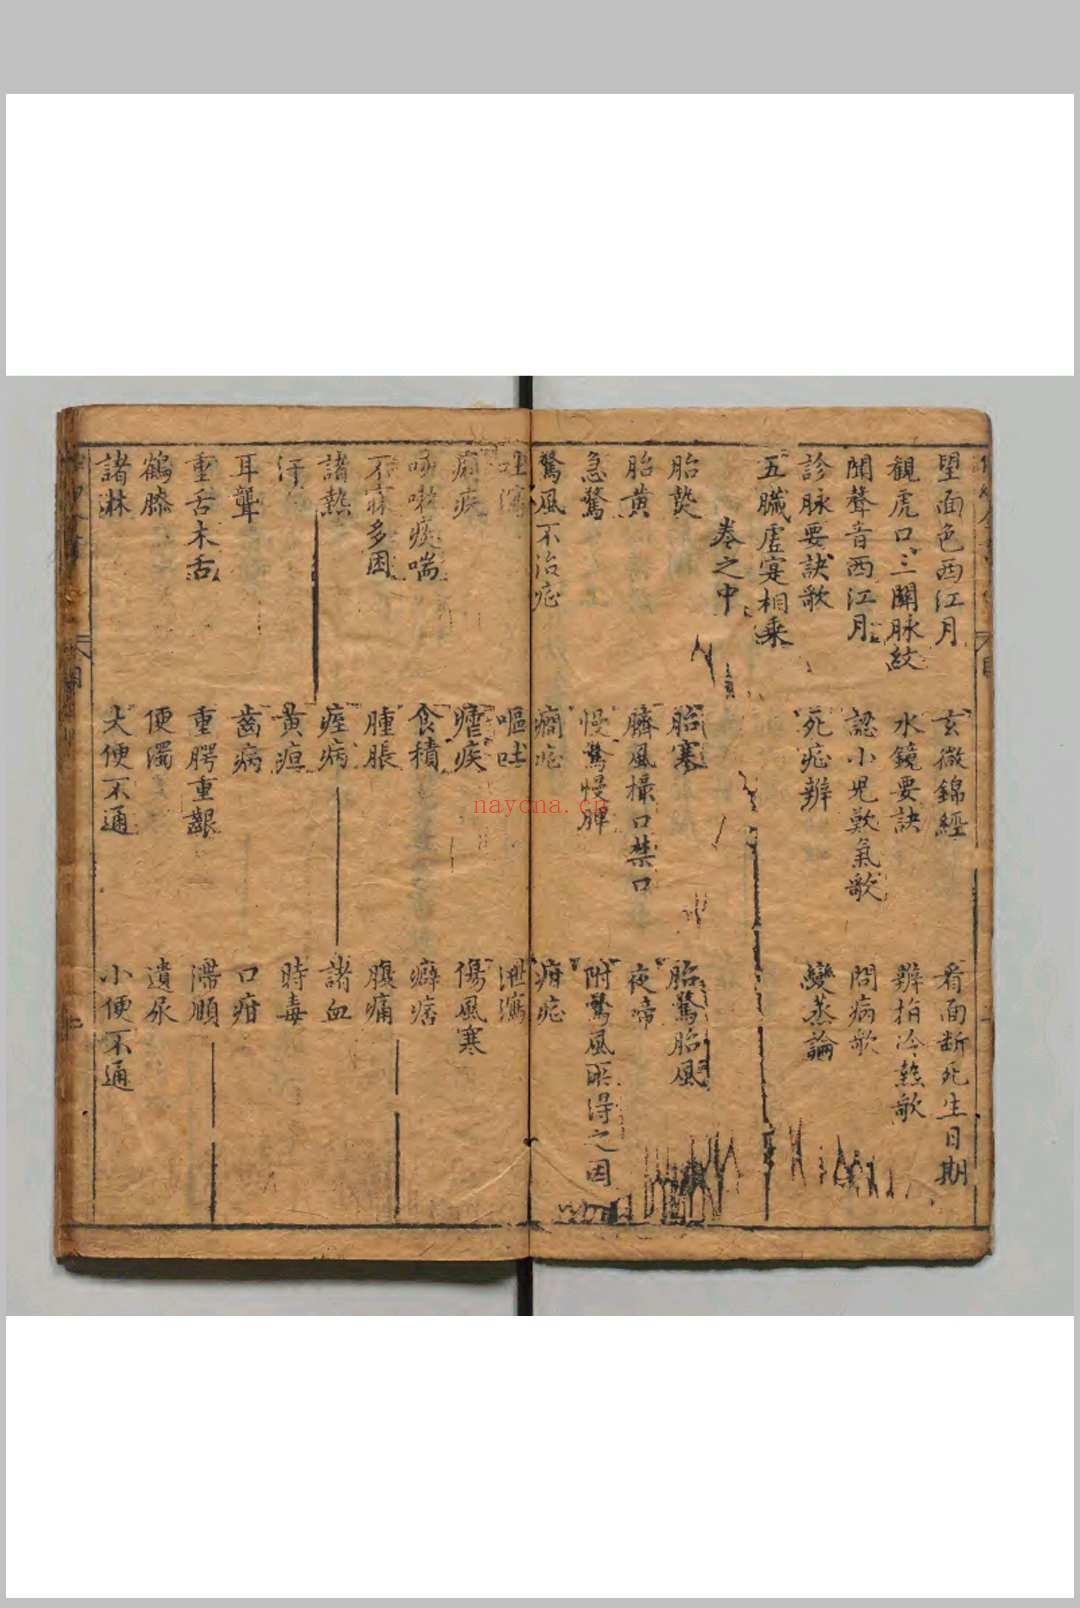 望面色西江月　玄微錦經　看面断死生日期
観虎口三關脉紋　水鏡要訣　辨指冷熱歌
聞聲音西江月　認小児歎氣歌　問病歌
診脉要訣歌　死症辨　變蒸論
五臟虛寔相乗
卷之中
胎熱　胎寒　胎驚胎風
胎黄　臍風撮口禁口　夜啼
急驚　慢驚慢脾　附驚風所得之因
驚風不治症　癇症　疳症
吐瀉　嘔吐　泄瀉
痢疾　瘧疾　傷風寒
咳嗽痰喘　食積　癖痞
不寐多困　腫脹　腹痛
諸熱　痓病　諸血
汗　黄疸　時毒
耳聾　齒病　口疳
重舌木舌　重腭重齦　滯頤
鶴膝　便濁　遺尿
諸淋　大便不通　小便不通
目
naycna.cn